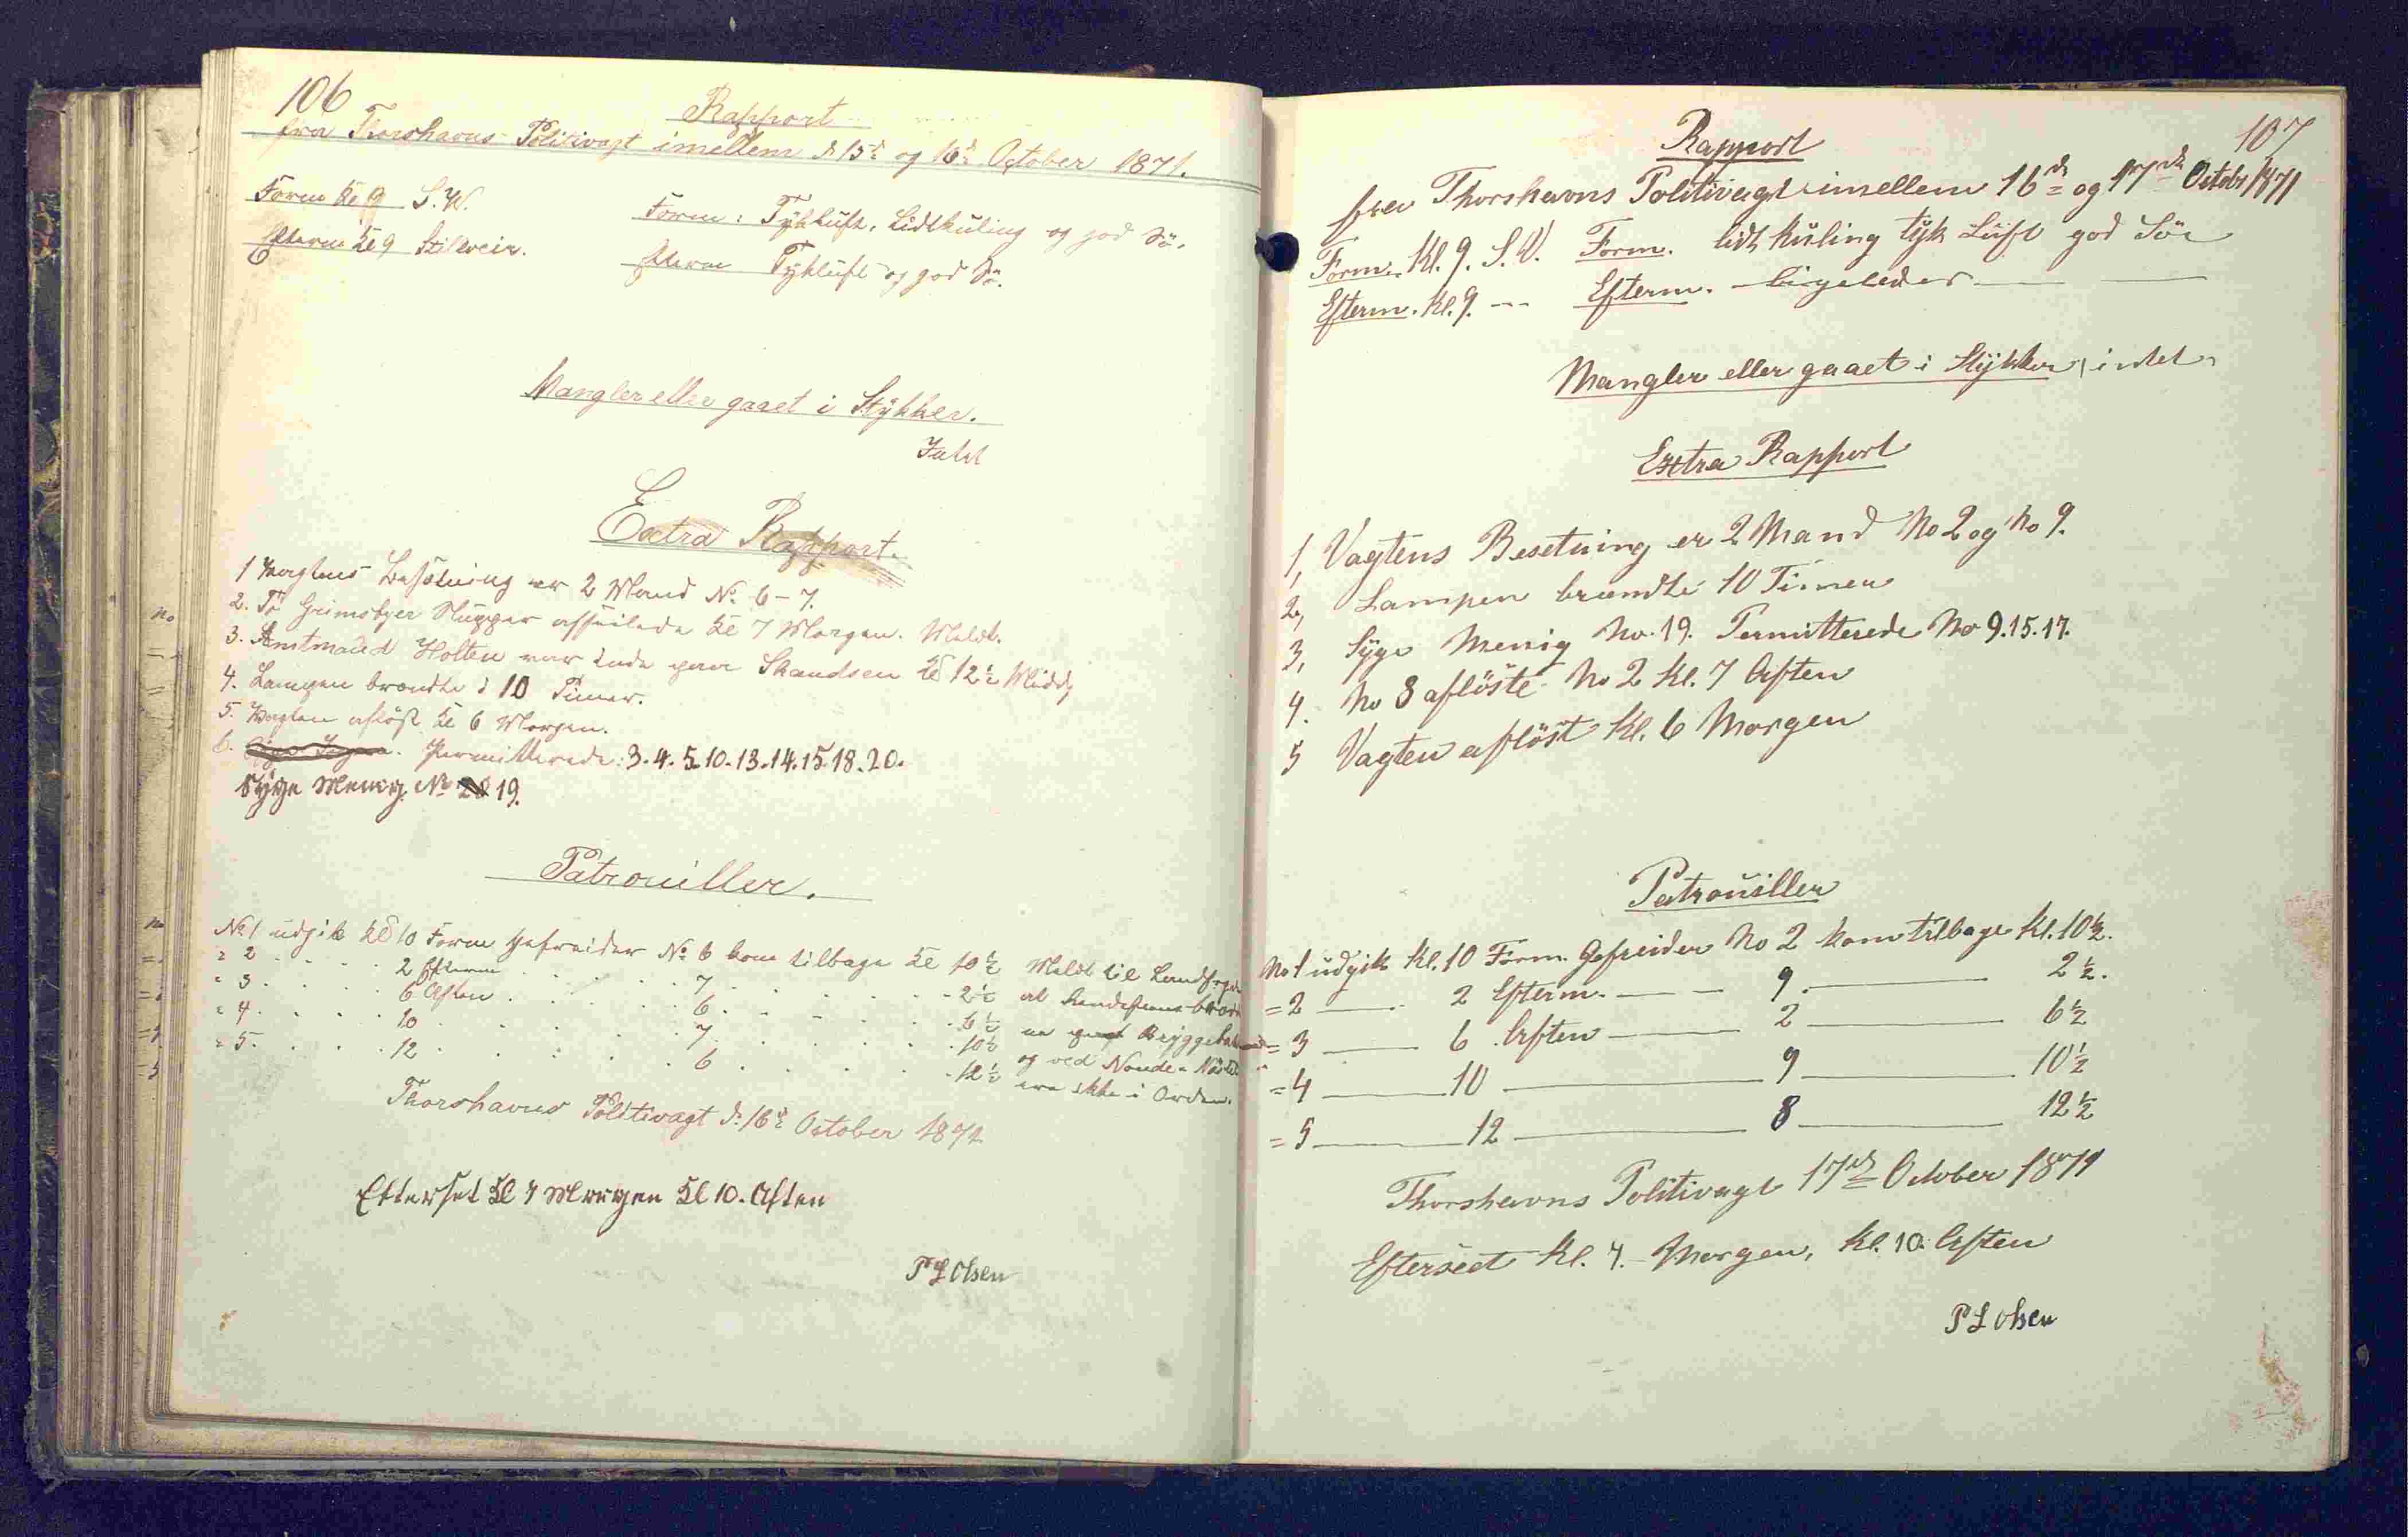 106
Rapport
fra Thorshavns Politivagt imellem d 15d og 16d October 1871.
Form Kl 9 S.W.
Form: Tykluft, Lidtkuling og god Sö.
Efterm Kl 9 Stilveir.
Efterm Tykluft og god Sö.
Mangler eller gaaet i Stÿkker.
Intet
Extra Rapport.
1 Vagtens Besætning er 2 Mand No 6-7.
2. To Grimsbyer Slupper afseilede Kl 7 Morgen. Meldt.
3. Amtmand Holten var inde paa Skandsen Kl 12½ Middg
4. Lampen brændte i 10 Timer.
5. Vagten aflöst Kl 6 Morgen.
6. Permitterede: 3.4.5.10.13.14.15.18.20.
Syge Menig No 19.
Patrouiller.
No 1 udgik Kl 10 Form Gefreider No 6 kom tilbage Kl 10½ Meldt til
= 2 . . . . 2 Efterm . . . . 7 . . . . 2½ at
= 3 . . . . 6 Aften . . . . 6 . . . . 6½
= 4 . . . . 10 . . . . 7 . . . . 10½ og ved
= 5 . . . . 12 . . . . 6 . . . . 12½ ere ikke i Orden.
Thorshavns Politivagt d. 16d October 1871
Efterset Kl 4 Morgen Kl 10. Aften
P L Olsen
107
Rapport
fra Thorshavns Politivagt imellem 16de og 17de Octobr 1871
Form. Kl. 9. S.V. Form. lidt kuling tÿk Lüft god Söe
Efterm. Kl. 9. --- Efterm. ligeledes
Mangler eller gaaet i Stÿkker, intet
Extra Rapport
1, Vagtens Besetning er 2 Mand No 2 og No 9.
2, Lampen brændte 10 Timer
3, Sÿge Menig No. 19. Permitterede No 9.15.17.
4. No 8 aflöste No 2 Kl. 7 Aften
5 Vagten aflöst Kl. 6 Morgen
Patrouiller
No 1 udgik Kl. 10 Form. Gefreider No 2 kom tilbage Kl. 10½.
= 2 — 2 Efterm. — 9. — 2½.
= 3 — 6 Aften — 2 — 6½
= 4 — 10 — 9 — 10½
= 5 — 12 — 8 — 12½
Thorshavns Politivagt 17de October 1871
Efterseet Kl. 4. Morgen, Kl. 10. Aften
P L Olsen